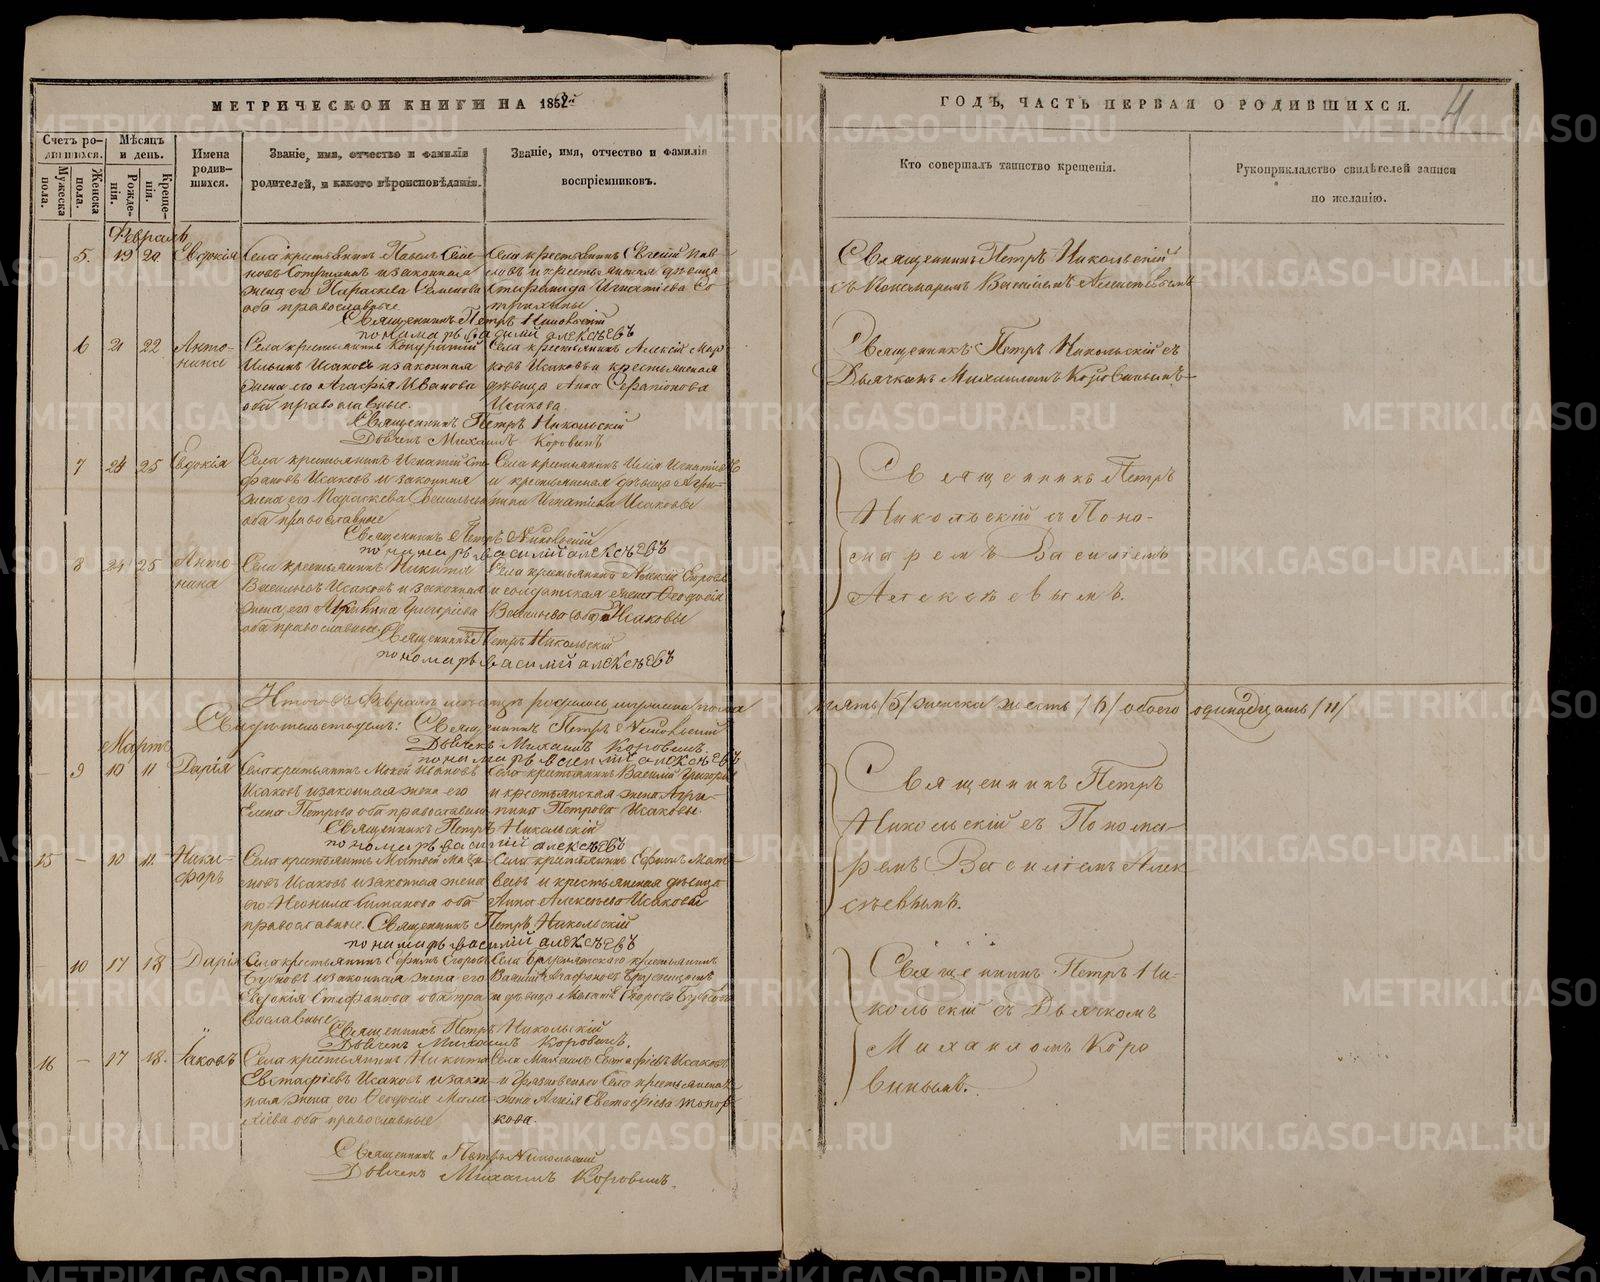 МЕТРИЧЕСКОЙ КНИГИ НА 1852й
Счетъ родившихся.
Мѣсяцъ и день.
Имена родившихся.
Званіе, имя, отчество и фамилія родителей, и какого вѣроисповѣданія.
Званіе, имя, отчество и фамилія воспріемниковъ.
Мужеска пола.
Женска пола.
Рожденія.
Крещенія.
Февраль
5. 19 20 Евдокія
Села крестьянинъ Павелъ Семе-
и законная
жена его Параскева Семенова
оба православные
Села крестьянинъ Евгеній Пав-
ловъ и крестьянская дѣвица
Игнатіева
Священникъ Петръ Никольскій
пономарь василий алексѣевъ
6 21 22 Анто-
нина
Села крестьянинъ Кондратій
Ильинъ Исаковъ и законная
жена его Агафья Иванова
оба православные.
Села крестьянинъ Алексій Мар-
ковъ Исаковъ и крестьянская
дѣвица Анна Серапіонова
Исакова.
Священникъ Петръ Никольскій
Дьячекъ Михаилъ Коровинъ
7 24 25 Евдокія
Села крестьянинъ Игнатій Сте-
фановъ Исаковъ и законная
жена его Параскева Васильева
оба православные
Села крестьянинъ Илія Игнатіевъ
и крестьянская дѣвица Агри-
пина Игнатіева Исаковы
Священникъ Петръ Никольскій
пономарь василий алексѣевъ
8 24 25 Анто-
нина
Села крестьянинъ Никита
Васильевъ Исаковъ и законная
жена его Григорьева
оба православные.
Села крестьянинъ Алексій Егоровъ
и солдатская жена Ѳеодосія
Васильева (оба) Исаковы
Священникъ Петръ Никольскій
пономарь василий алексѣевъ
Итого въ Февралѣ мѣсяцѣ родилось мужеска пола
Свидѣтельствуемъ: Священникъ Петръ Никольскій
Дьячекъ Михаилъ Коровинъ.
пономарь василий алексѣевъ
Мартъ
9 10 11 Дарія
Села крестьянинъ Мокей Ивановъ
Исаковъ и законная жена его
Елена Петрова оба православные
Села крестьянинъ Василій Григорьевъ
и крестьянская жена Агри-
пина Петрова Исаковы.
Священникъ Петръ Никольскій
пономарь василий алексѣевъ
15 – 10 11. Ники-
форъ
Села крестьянинъ Матвей
Исаковъ и законная жена
его Неонила оба
православные.
Села крестьянинъ Ефимъ Мат-
вевъ и крестьянская дѣвица
Анна Алексѣева Исаковы
Священникъ Петръ Никольскій
пономарь василий алексѣевъ
10 17 18 Дарія
Села крестьянинъ Ефимъ Егоровъ
Бубновъ и законная жена его
Евдокія Стефанова оба пра-
вославные
Села Бруснятскаго крестьянинъ
Василій Агафоновъ Брусницынъ
и дѣвица Маланія Егорова Бубнова
Священникъ Петръ Никольскій
Дьячекъ Михаилъ Коровинъ.
16 – 17 18. Іаковъ
Села крестьянинъ Никита
Евстафіевъ Исаковъ и закон-
ная жена его Ѳеодосія Мала-
хіева оба православные
Села Михаилъ Евстафіевъ Исаковъ
и Грязновскаго Села крестьянская
жена Евстафіева Топор-
кова.
Священникъ Петръ Никольскій
Дьячекъ Михаилъ Коровинъ.
ГОДЪ, ЧАСТЬ ПЕРВАЯ О РОДИВШИХСЯ.
4
Кто совершалъ таинство крещенія.
Рукоприкладство свидѣтелей записи по желанію.
Священникъ Петръ Никольскій
съ Пономаремъ Василіемъ Алексѣевымъ
Священникъ Петръ Никольскій съ
Дьячкомъ Михаиломъ Коровинымъ
Священникъ Петръ
Никольскій съ Поно-
маремъ Василіемъ
Алексѣевымъ.
пять /5/ женска шесть /6/ обоего одинадцать /11/
Священникъ Петръ
Никольскій съ Понома-
ремъ Василіемъ Алек
сѣевымъ.
Священникъ Петръ Ни-
кольскій съ Дьячкомъ
Михаиломъ Коро
винымъ.
METRIKI.GASO-URAL.RU